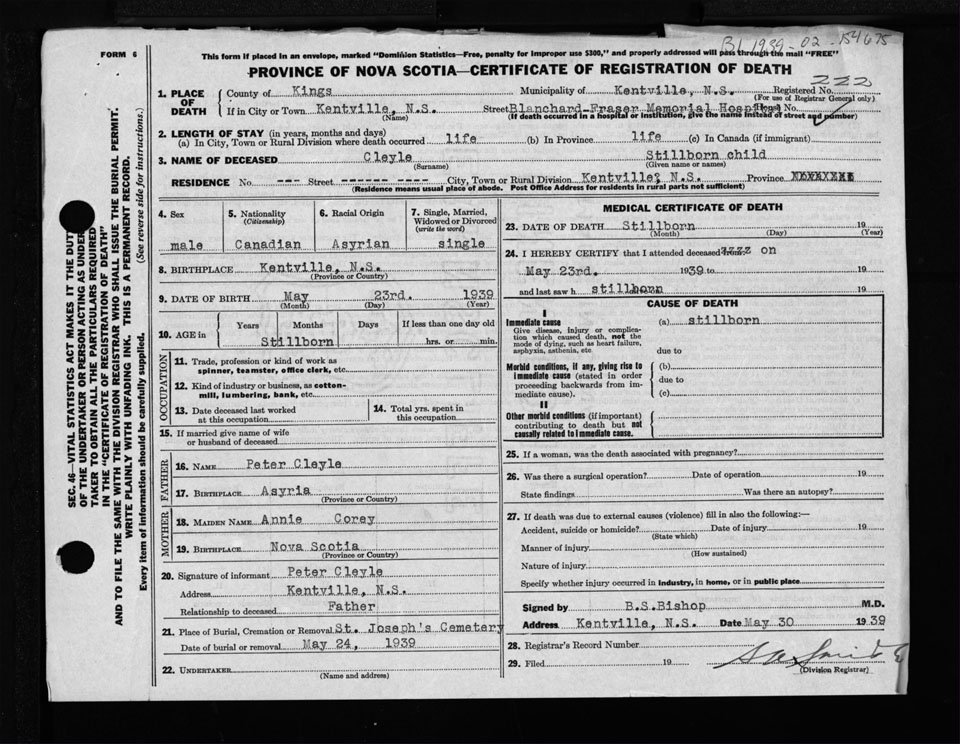 B1 1939 - 02 - 154675
FORM 6
This form if placed in an envelope, marked "Dominion Statistics—Free, penalty for improper use $300," and properly addressed will pass through the mail "FREE"
PROVINCE OF NOVA SCOTIA—CERTIFICATE OF REGISTRATION OF DEATH
222
1. PLACE OF DEATH { County of Kings Municipality of Kentville, N.S. Registered No.
(For use of Registrar General only)
If in City or Town Kentville, N.S. Street Blanchard-Fraser Memorial Hospital No.
(Name) (If death occurred in a hospital or institution, give the name instead of street and number)
2. LENGTH OF STAY (in years, months and days)
(a) In City, Town or Rural Division where death occurred life (b) In Province life (c) In Canada (if immigrant)
3. NAME OF DECEASED Cleyle Stillborn child
(Surname) (Given name or names)
RESIDENCE No --- Street ------- ---- City, Town or Rural Division Kentville, N.S. Province
(Residence means usual place of abode. Post Office Address for residents in rural parts not sufficient)
4. Sex
male
5. Nationality
(Citizenship)
Canadian
6. Racial Origin
Asyrian
7. Single, Married,
Widowed or Divorced
(write the word)
single
8. BIRTHPLACE Kentville, N.S.
(Province or Country)
9. DATE OF BIRTH May 23rd. 1939
(Month) (Day) (Year)
10. AGE in Years Months Days If less than one day old
Stillborn hrs. or min.
OCCUPATION
11. Trade, profession or kind of work as
spinner, teamster, office clerk, etc.
12. Kind of industry or business, as cotton-
mill, lumbering, bank, etc.
13. Date deceased last worked
at this occupation
14. Total yrs. spent in
this occupation
15. If married give name of wife
or husband of deceased
FATHER
16. NAME Peter Cleyle
17. BIRTHPLACE Asyria
(Province or Country)
MOTHER
18. MAIDEN NAME Annie Corey
19. BIRTHPLACE Nova Scotia
(Province or Country)
20. Signature of informant Peter Cleyle
Address Kentville, N.S.
Relationship to deceased Father
21. Place of Burial, Cremation or Removal St. Joseph's Cemetery
Date of burial or removal May 24, 1939
22. UNDERTAKER
(Name and address)
MEDICAL CERTIFICATE OF DEATH
23. DATE OF DEATH Stillborn 19
(Month) (Day) (Year)
24. I HEREBY CERTIFY that I attended deceased on
May 23rd. 1939 to 19
and last saw h stillborn 19
CAUSE OF DEATH
I
Immediate cause (a) stillborn
Give disease, injury or complica-
tion which caused death, not the
mode of dying, such as heart failure,
asphyxia, asthenia, etc
due to
Morbid conditions, if any, giving rise to (b)
immediate cause (stated in order due to
proceeding backwards from im-
mediate cause). (c)
II
Other morbid conditions (if important)
contributing to death but not
causally related to immediate cause.
25. If a woman, was the death associated with pregnancy?
26. Was there a surgical operation? Date of operation 19
State findings Was there an autopsy?
27. If death was due to external causes (violence) fill in also the following:—
Accident, suicide or homicide? Date of injury 19
(State which)
Manner of injury
(How sustained)
Nature of injury
Specify whether injury occurred in industry, in home, or in public place
Signed by B.S.Bishop M.D.
Address Kentville, N.S. Date May 30 1939
28. Registrar's Record Number
29. Filed 19
(Division Registrar)
SEC. 46—VITAL STATISTICS ACT MAKES IT THE DUTY
OF THE UNDERTAKER OR PERSON ACTING AS UNDER-
TAKER TO OBTAIN ALL THE PARTICULARS REQUIRED
IN THE "CERTIFICATE OF REGISTRATION OF DEATH"
AND TO FILE THE SAME WITH THE DIVISION REGISTRAR WHO SHALL ISSUE THE BURIAL PERMIT.
WRITE PLAINLY WITH UNFADING INK. THIS IS A PERMANENT RECORD.
Every item of information should be carefully supplied. (See reverse side for instructions.)